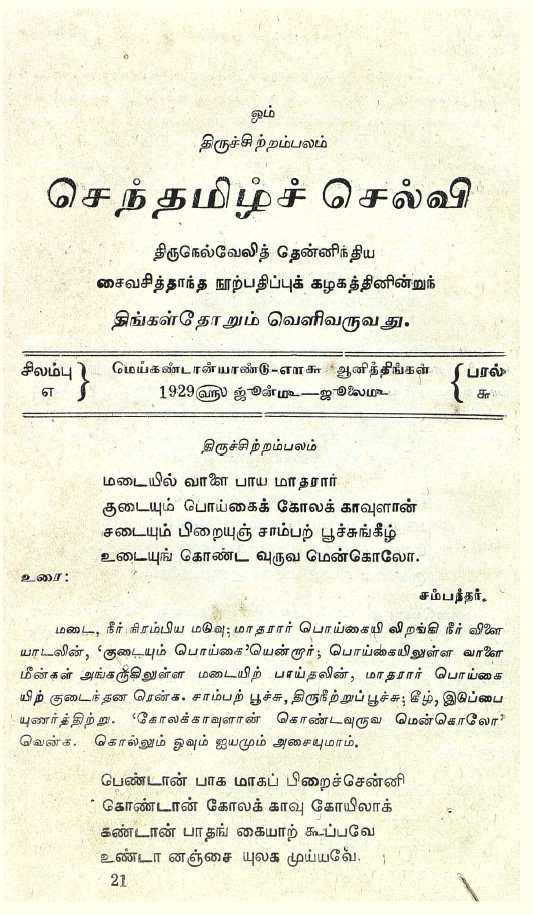 ஓம்
திருச்சிற்றம்பலம்
செந்தமிழ்ச் செல்வி
திருநெல்வேலித் தென்னிந்திய
சைவசித்தாந்த நூற்பதிப்புக் கழகத்தினின்றுந்
திங்கள்தோறும் வெளிவருவது.
சிலம்பு எ } மெய்கண்டான்யாண்டு-எ௱௬ ஆனித்திங்கள் { பரல் ௬
1929 ௵ ஜூன்௴—ஜூலை௴
திருச்சிற்றம்பலம்
மடையில் வாளை பாய மாதரார்
குடையும் பொய்கைக் கோலக் காவுளான்
சடையும் பிறையுஞ் சாம்பற் பூச்சுங்கீழ்
உடையுங் கொண்ட வுருவ மென்கொலோ.
உரை:
சம்பந்தர்.
மடை, நீர் நிரம்பிய மடுவு; மாதரார் பொய்கையி லிறங்கி நீர் விளை
யாடலின், ‘குடையும் பொய்கை’யென்றார்; பொய்கையிலுள்ள வாளை
மீன்கள் அங்கருகிலுள்ள மடையிற் பாய்தலின், மாதரார் பொய்கை
யிற் குடைந்தன ரென்க. சாம்பற் பூச்சு, திருநீற்றுப்பூச்சு; கீழ், இடுப்பை
யுணர்த்திற்று. ‘கோலக்காவுளான் கொண்டவுருவ மென்கொலோ’
வென்க. கொல்லும் ஓவும் ஐயமும் அசையுமாம்.
பெண்டான் பாக மாகப் பிறைச்சென்னி
கொண்டான் கோலக் காவு கோயிலாக்
கண்டான் பாதங் கையாற் கூப்பவே
உண்டா னஞ்சை யுலக முய்யவே.
21